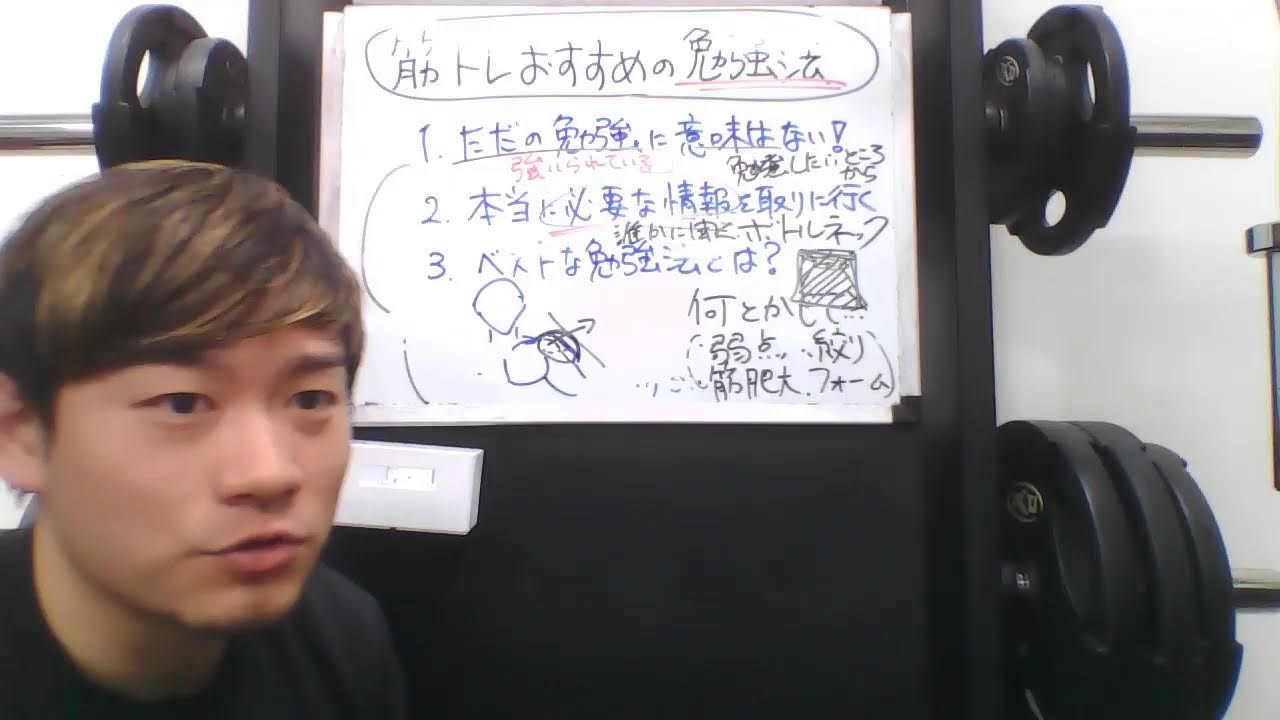 筋トレおすすめの勉強法
1. ただの勉強に意味はない!
強いられている
勉強したいところから
2. 本当に必要な情報を取りに行く
誰かに聞く ボトルネック
3. ベストな勉強法とは?
何とかして...
弱点 絞り
筋肥大.フォーム